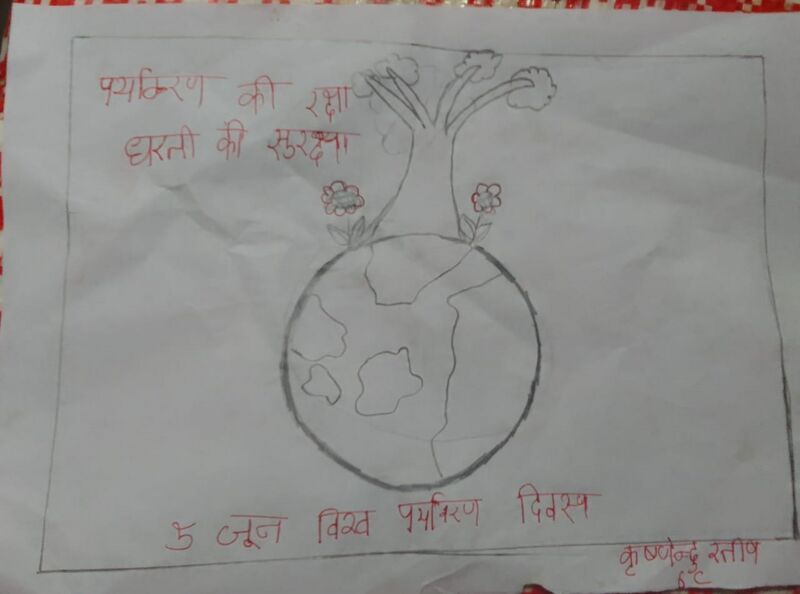 पर्यावरण की रक्षा
धरती की सुरक्षा
5 जून विश्व पर्यावरण दिवस
कृष्णेन्दु रतीष
6C